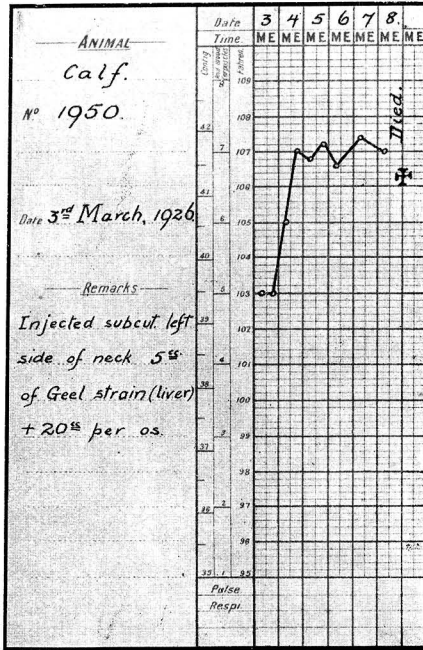 ANIMAL
Calf.
No 1950.
Date 3rd March, 1926
Remarks
Injected subcut. left
side of neck 5cc
of Geel strain (liver)
+ 20cc per os.
Date 3 4 5 6 7 8.
Time M E M E M E M E M E M E M E
Centig
Fahren.
109
108
42
7
107
106
41
6
105
104
40
5
103
39
102
101
4
38
100
99
37
98
97
36
96
35
1
95
Died.
Pulse
Respi.